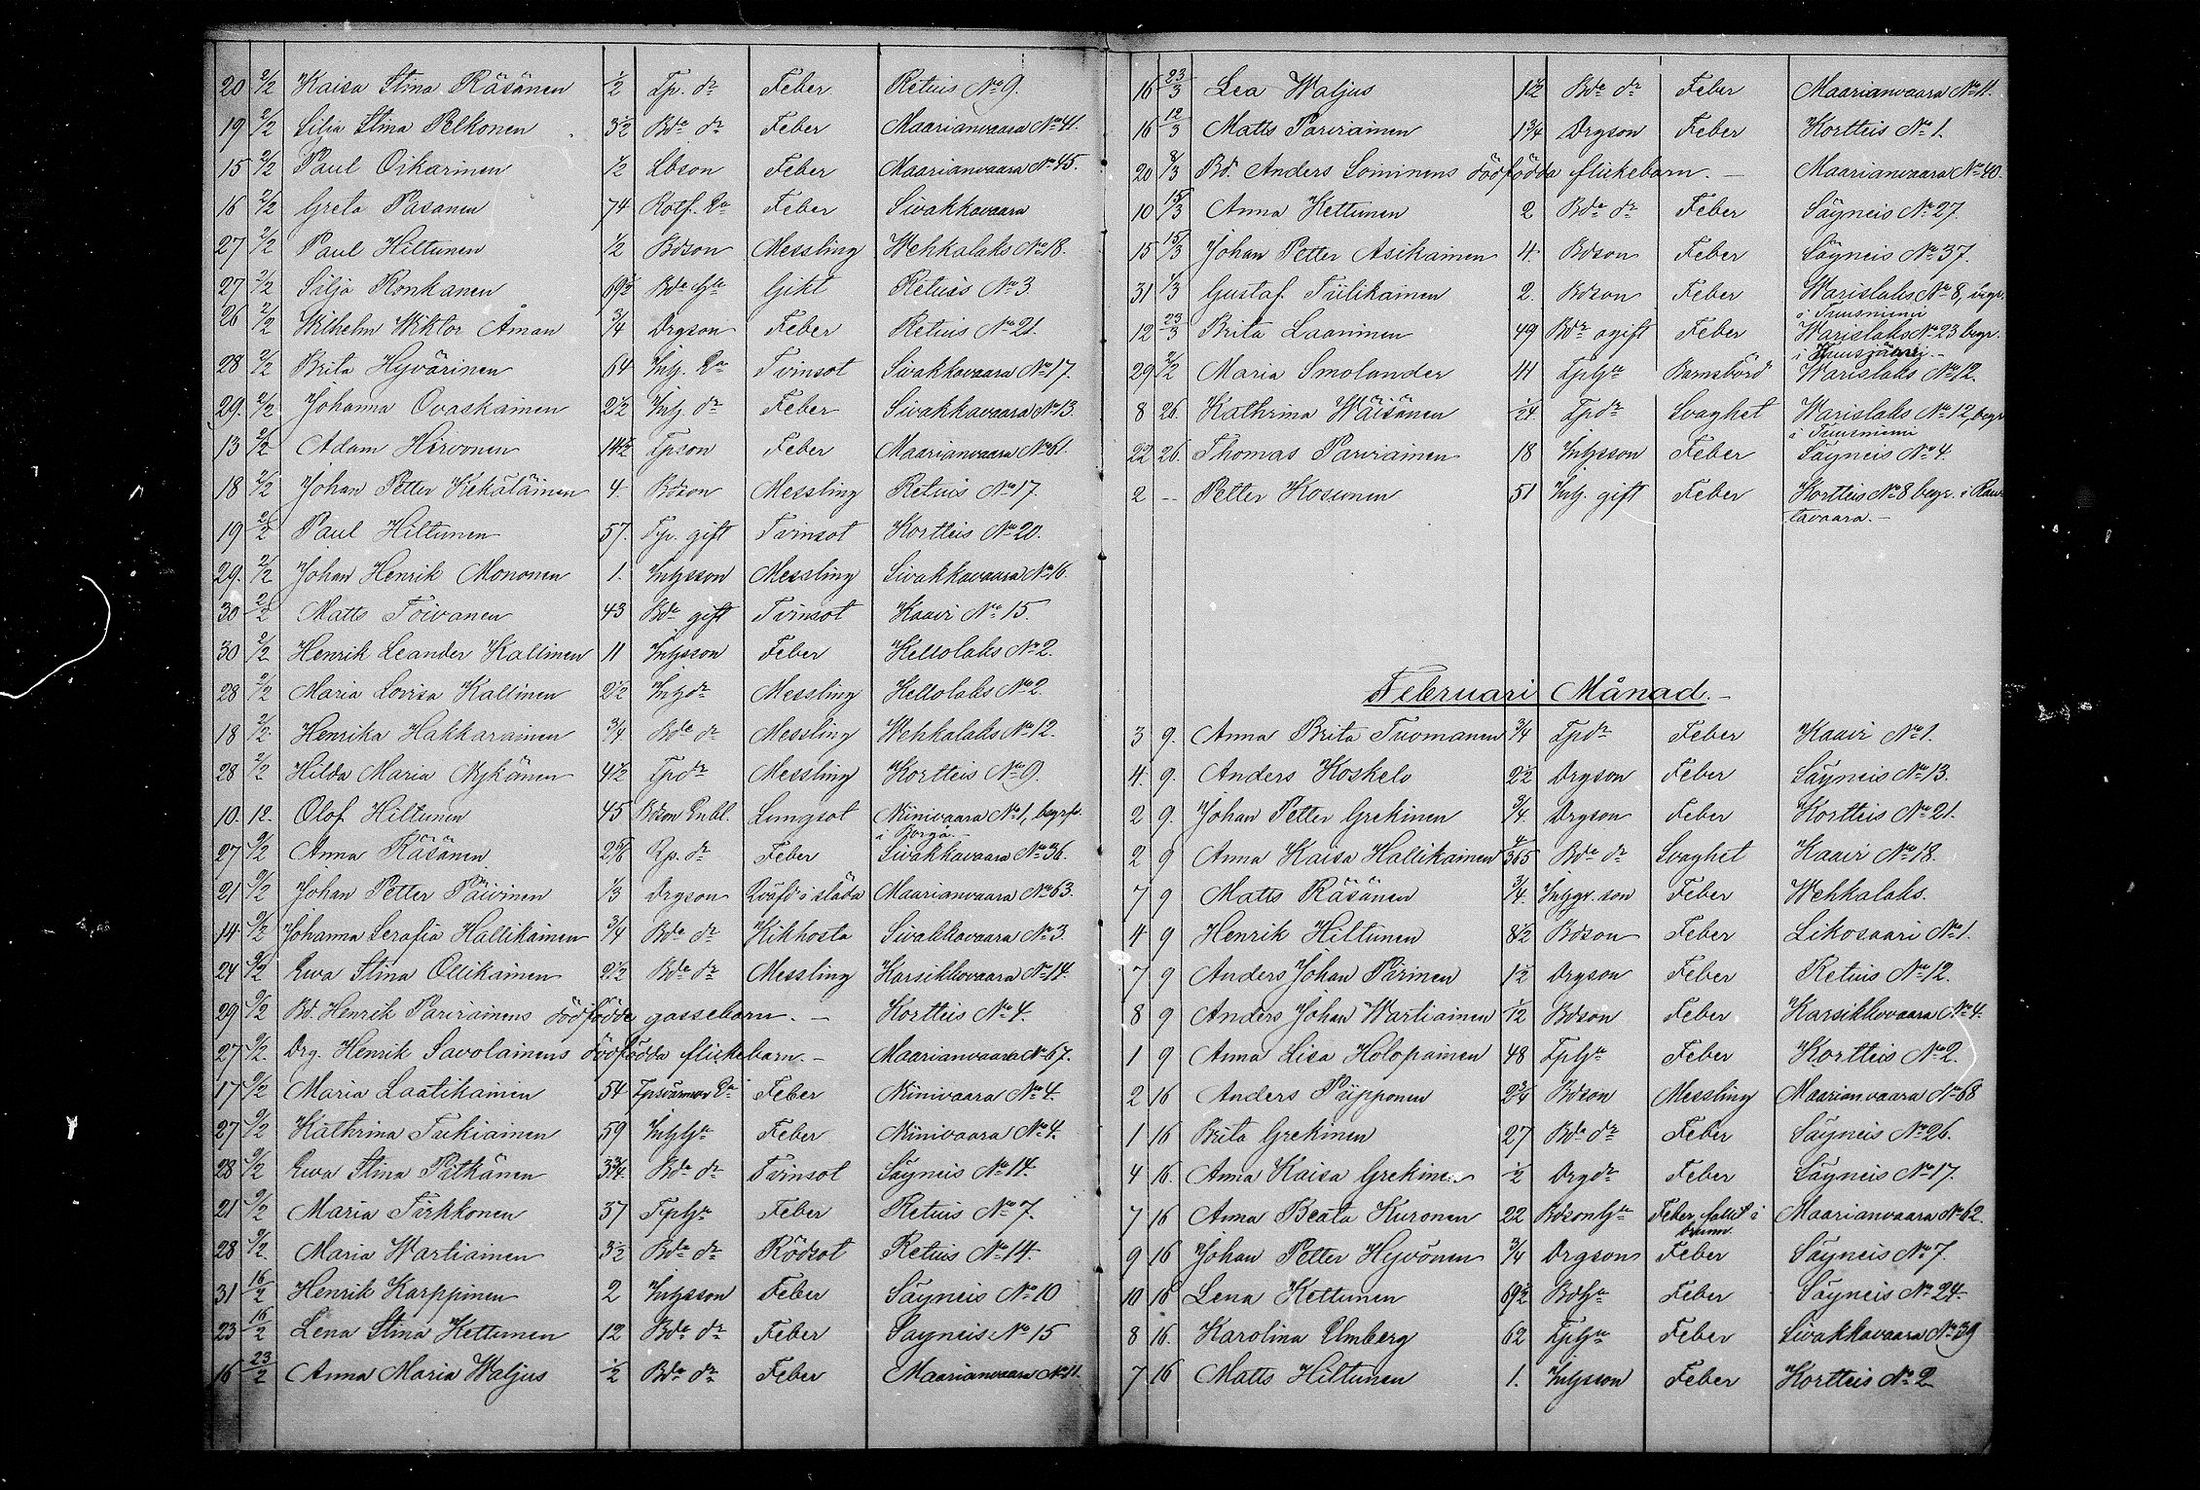 20 2/2 Kaisa Stina Räsänen 1/2 Tp. dr Feber Retuis No 9.
19 2/2 Silja Stina Pelkonen 3 1/2 Bde dr Feber Maarianvaara No 41.
15 2/2 Paul Oikarinen 1/2 Lbson Feber Maarianvaara No 45.
16 2/2 Greta Pasanen 74 Rotf. Ea Feber Sivakkavaara
27 2/2 Paul Hiltunen 1/2 Bdson Messling Wehkalaks No 18.
27 2/2 Silja Ronkanen 69 1/2 Bde Hu Gikt Retuis No 3
26 2/2 Wilhelm Wiktor Åman 3/4 Drgson Feber Retuis No 21.
28 2/2 Brita Hyvärinen 64 Inh. Ea Tvinsot Sivakkavaara No 17.
29. 2/2 Johanna Ovaskainen 2 1/2 Inh. dr Feber Sivakkavaara No 13.
13 2/2 Adam Hirvonen 14 1/2 Tpson Feber Maarianvaara No 61.
18 2/2 Johan Petter Kekäläinen 4. Bdson Messling Retuis No 17.
19 2/2 Paul Hiltunen 57. Tp. gift Tvinsot Kortteis No 20.
29. 2/2 Johan Henrik Mononen 1. Inhsson Messling Sivakkavaara No 16.
30 2/2 Matts Toivanen 43 Bde gift Tvinsot Kaavi No 15.
30 2/2 Henrik Leander Kallinen 11 Inhsson Feber Keltolaks No 2.
28 2/2 Maria Lovisa Kallinen 2 1/2 Inhdr Messling Keltolaks No 2.
18 2/2 Henrika Hakkarainen 3/4 Bde dr Messling Wehkalaks No 12.
28 2/2 Hilda Maria Rykänen 4 1/2 Tpdr Messling Kortteis No 9.
10. 12. Olof Hiltunen 45 Bdson Enkl. Lungsot Niinivaara No 1, begrfv.
i Borgå. -
27 9/2 Anna Räsänen 2 5/6 Rp. dr Feber Sivakkavaara No 36.
21 9/2 Johan Petter Päivinen 1/3 Drgson Qväfd i släda Maarianvaara No 63.
14 9/2 Johanna Serafia Hallikainen 3/4 Bde dr Kikhosta Sivakkavaara No 3.
24 9/2 Ewa Stina Ollikainen 2 1/2 Bde dr Messling Karsikkovaara No 14.
29 9/2 Bd. Henrik Parviainens dödfödde gossebarn. - Kortteis No 4.
27 9/2 Drg. Henrik Savolainens dödfödda flickebarn. - Maarianvaara No 67.
17 9/2 Maria Laatikainen 54 Feber Niinivaara No 4.
27 9/2 Kathrina Tukiainen 59 InhHu Feber Niinivaara No 4.
28 9/2 Ewa Stina Pitkänen 3 3/4 Bde dr Tvinsot Säyneis No 14.
21 9/2 Maria Tirkkonen 37 TpHu Feber Retuis No 7.
28 9/2 Maria Wartiainen 3 1/2 Bde dr Rödsot Retuis No 14.
31 16/2 Henrik Karppinen 2 Inhsson Feber Säyneis No 10
23 16/2 Lena Stina Kettunen 12 Bde dr Feber Säyneis No 15
16 23/2 Anna Maria Waljus 1/2 Bde dr Feber Maarianvaara No 11.
16 23/3 Lea Waljus 1 1/2 Bde dr Feber Maarianvaara No 11.
16 12/3 Matts Parviainen 1 3/4 Drgson Feber Kortteis No 1.
20 8/3 Bd. Anders Lominens dödfödda flickebarn. - Maarianvaara No 40.
10 15/3 Anna Kettunen 2 Bde dr Feber Säyneis No 27.
15 15/3 Johan Petter Asikainen 4. Bdson Feber Säyneis No 37.
31 1/3 Gustaf Tiilikainen 2. Bdson Feber Warislaks No 8, begr.
i Tuusniemi
12 23/3 Brita Laaninen 49 Bdr ogift Feber Warislaks No 23 begr.
i Tuusjärvi. -
29 2/2 Maria Smolander 44 TpHu Barnsbörd Warislaks No 12.
8 26. Kathrina Wäisänen 1/24 Tpdr Svaghet Warislaks No 12, begr
i Tuusniemi
22 26. Thomas Parviainen 18 Inhsson Feber Säyneis No 4.
2 - - Petter Kosunen 51 Inh. gift Feber Kortteis No 8 begr. i Rau-
tavaara. -
Februari Månad. -
3 9. Anna Brita Tuomanen 3/4 Tpdr Feber Kaavi No 1.
4. 9. Anders Koskelo 2 1/2 Drgson Feber Säyneis No 13.
2 9. Johan Petter Grekinen 3/4. Drgson Feber Kortteis No 21.
2 9 Anna Kaisa Hallikainen 4/365 Bde dr Svaghet Kaavi No 18.
7 9 Matts Räsänen 3/4. Inhgr. son Feber Wehkalaks.
4 9 Henrik Hiltunen 8 1/2 Bdson Feber Likosaari No 1.
7 9 Anders Johan Pärinen 1 1/2 Drgson Feber Retuis No 12.
8 9 Anders Johan Wartiainen 1/12 Bdson Feber Karsikkovaara No 4.
1 9 Anna Lisa Holopainen 48 TpHu Feber Kortteis No 2.
2 16 Anders Piipponen 2 3/4 Bdson Messling Maarianvaara No 68
1 16 Brita Grekinen 27 Bde dr Feber Säyneis No 26.
4 16. Anna Kaisa Grekinen 1/2 Drgdr Feber Säyneis No 17.
7 16 Anna Beata Kuronen 22 BdsonHu Feber, fallit i
brunn. Maarianvaara No 62.
9 16 Johan Petter Hyvönen 3/4 Drgson Feber Säyneis No 7.
10 16 Lena Kettunen 69 1/2 BdHu Feber Säyneis No 24.
8 16. Karolina Elmberg 62 TpHu Feber Sivakkavaara No 39
7 16 Matts Hiltunen 1. Inhsson Feber Kortteis No 2